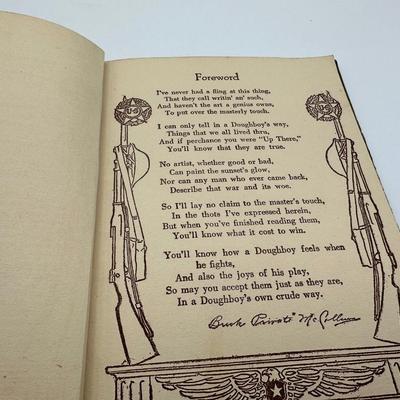 Foreword
I've never had a fling at this thing,
That they call writin' an' such,
And haven't the art a genius owns,
To put over the masterly touch.
I can only tell in a Doughboy's way,
Things that we all lived thru,
And if perchance you were "Up There,"
You'll know that they are true.
No artist, whether good or bad,
Can paint the sunset's glow,
Nor can any man who ever came back,
Describe that war and its woe.
So I'll lay no claim to the master's touch,
In the thots I've expressed herein,
But when you've finished reading them,
You'll know what it cost to win.
You'll know how a Doughboy feels when
he fights,
And also the joys of his play,
So may you accept them just as they are,
In a Doughboy's own crude way.
Buck Private McCollum
U.S.
U.S.